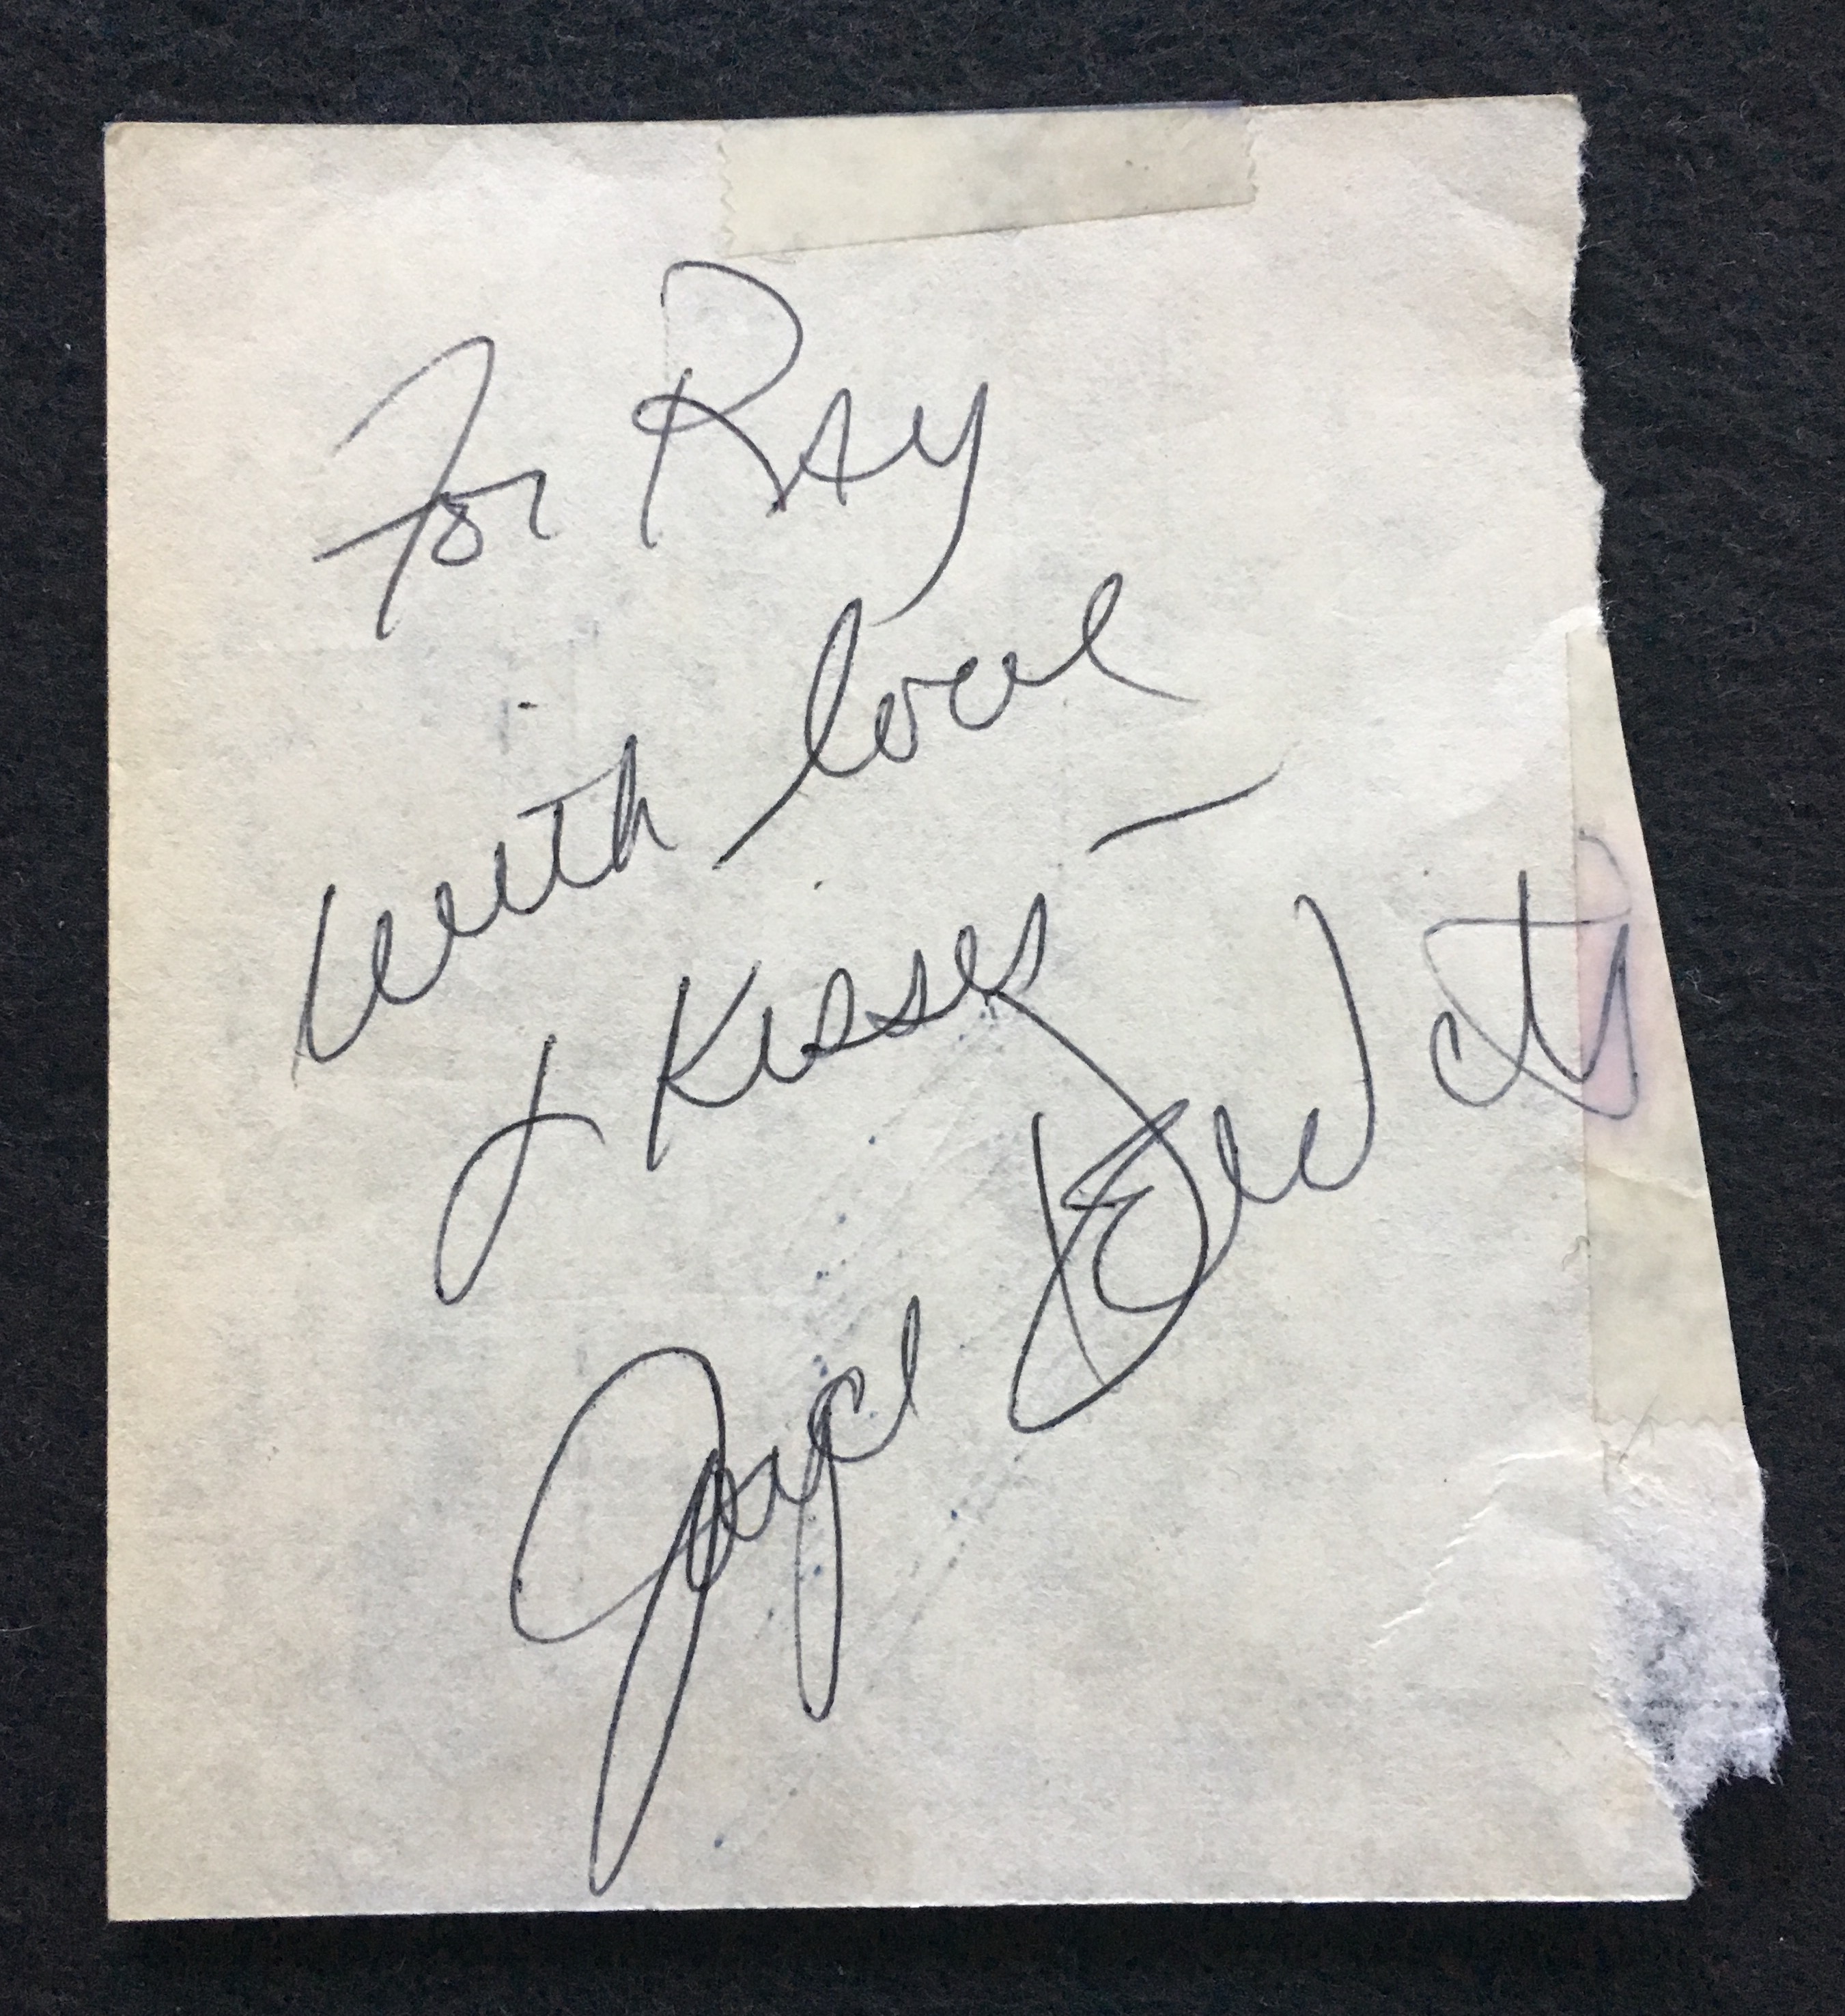 For Ray
with love
& Kisses —
Joyce DeWitt